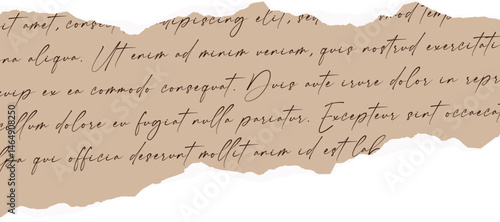 it amet, conse adipiscing elit, se mod temp
na aliqua. Ut enim ad minim veniam, quis nostrud exercitati
uip ex ea commodo consequat. Duis aute irure dolor in repr
illum dolore eu fugiat nulla pariatur. Excepteur sint occaecat
pa qui officia deserunt mollit anim id est lab
Adobe Stock
#1464908250